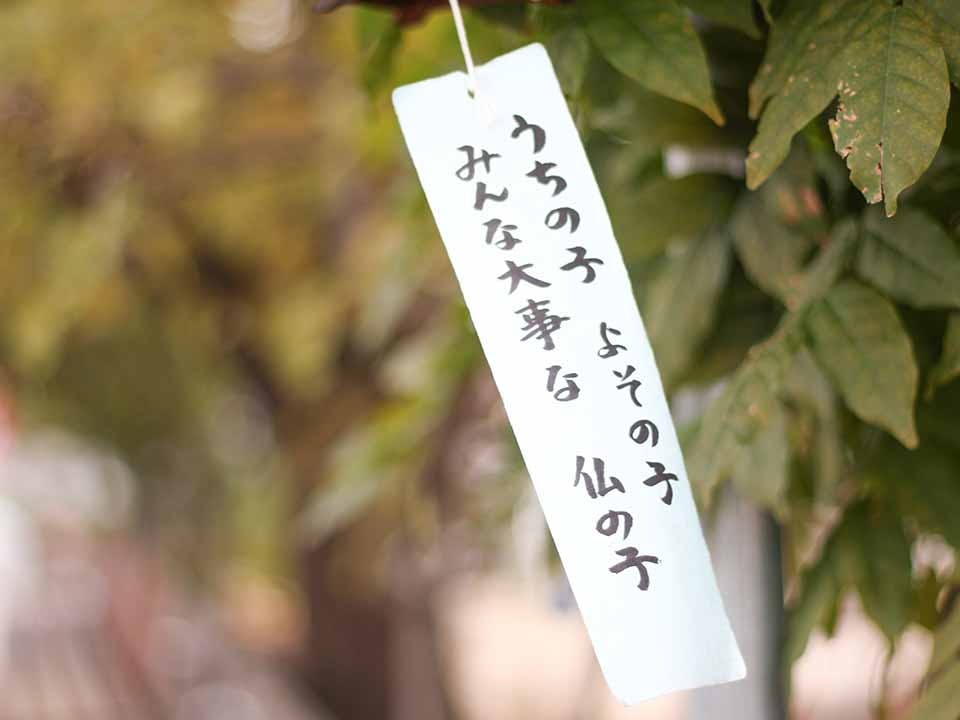 うちの子 よその子
みんな大事な 仏の子